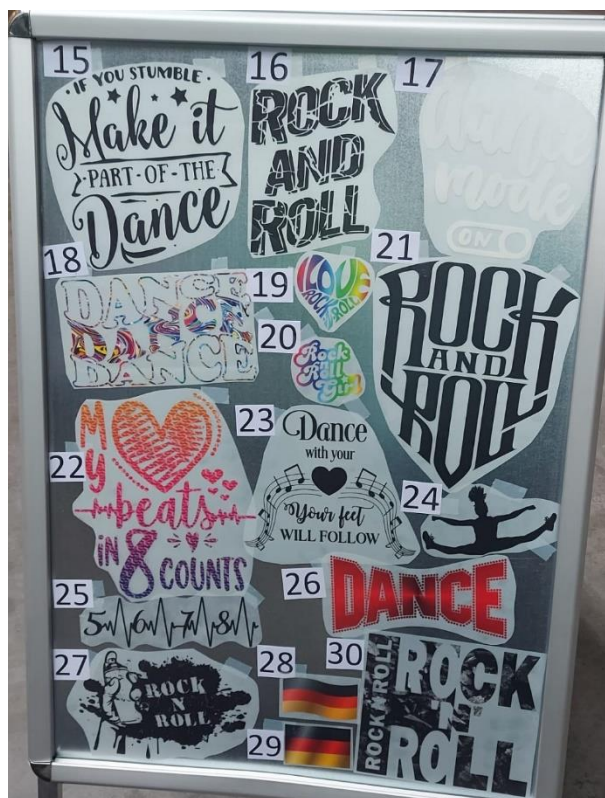 15
• IF YOU STUMBLE •
Make it
PART-OF-THE
Dance
16
ROCK
AND
ROLL
17
dance
mode
ON
18
DANCE
DANCE
DANCE
19
LOVE
ROCK N ROLL
20
Rock
n
Roll
Girl
21
ROCK
AND
ROLL
22
MY
beats
IN 8 COUNTS
23
Dance
with your
Your feet
WILL FOLLOW
24
25
5 6 7 8
26
DANCE
27
ROCK
N
ROLL
28
29
30
ROCK N ROLL
ROCK
'N'
ROLL